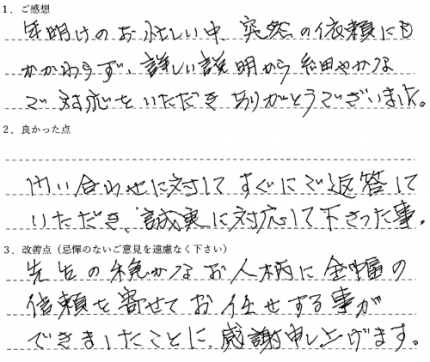 1．ご感想
年明けのお忙しい中、突然の依頼にも
かかわらず、詳しい説明から細やかな
ご対応をいただきありがとうございました。
2．良かった点
問い合わせに対してすぐにご返答して
いただき、誠実に対応して下さった事。
3．改善点（忌憚のないご意見を遠慮なく下さい）
先生の穏かなお人柄に全幅の
信頼を寄せてお任せする事が
できましたことに、感謝申し上げます。